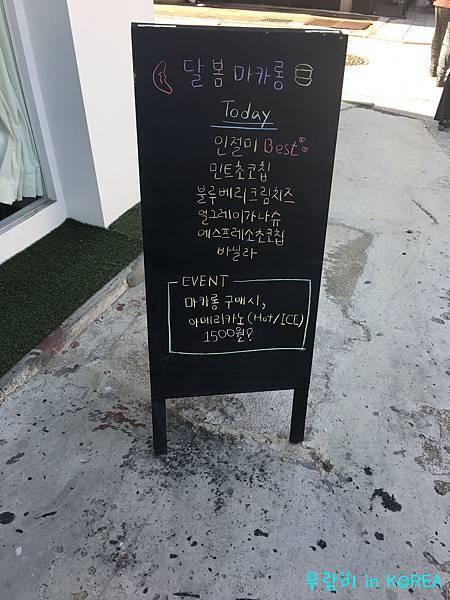 달봄마카롱
Today
인절미 Best
민트초코칩
블루베리크림치즈
얼그레이가나슈
에스프레소초코칩
바닐라
EVENT
마카롱 구매시,
아메리카노(Hot/ICE)
1500원?
우람히 in KOREA